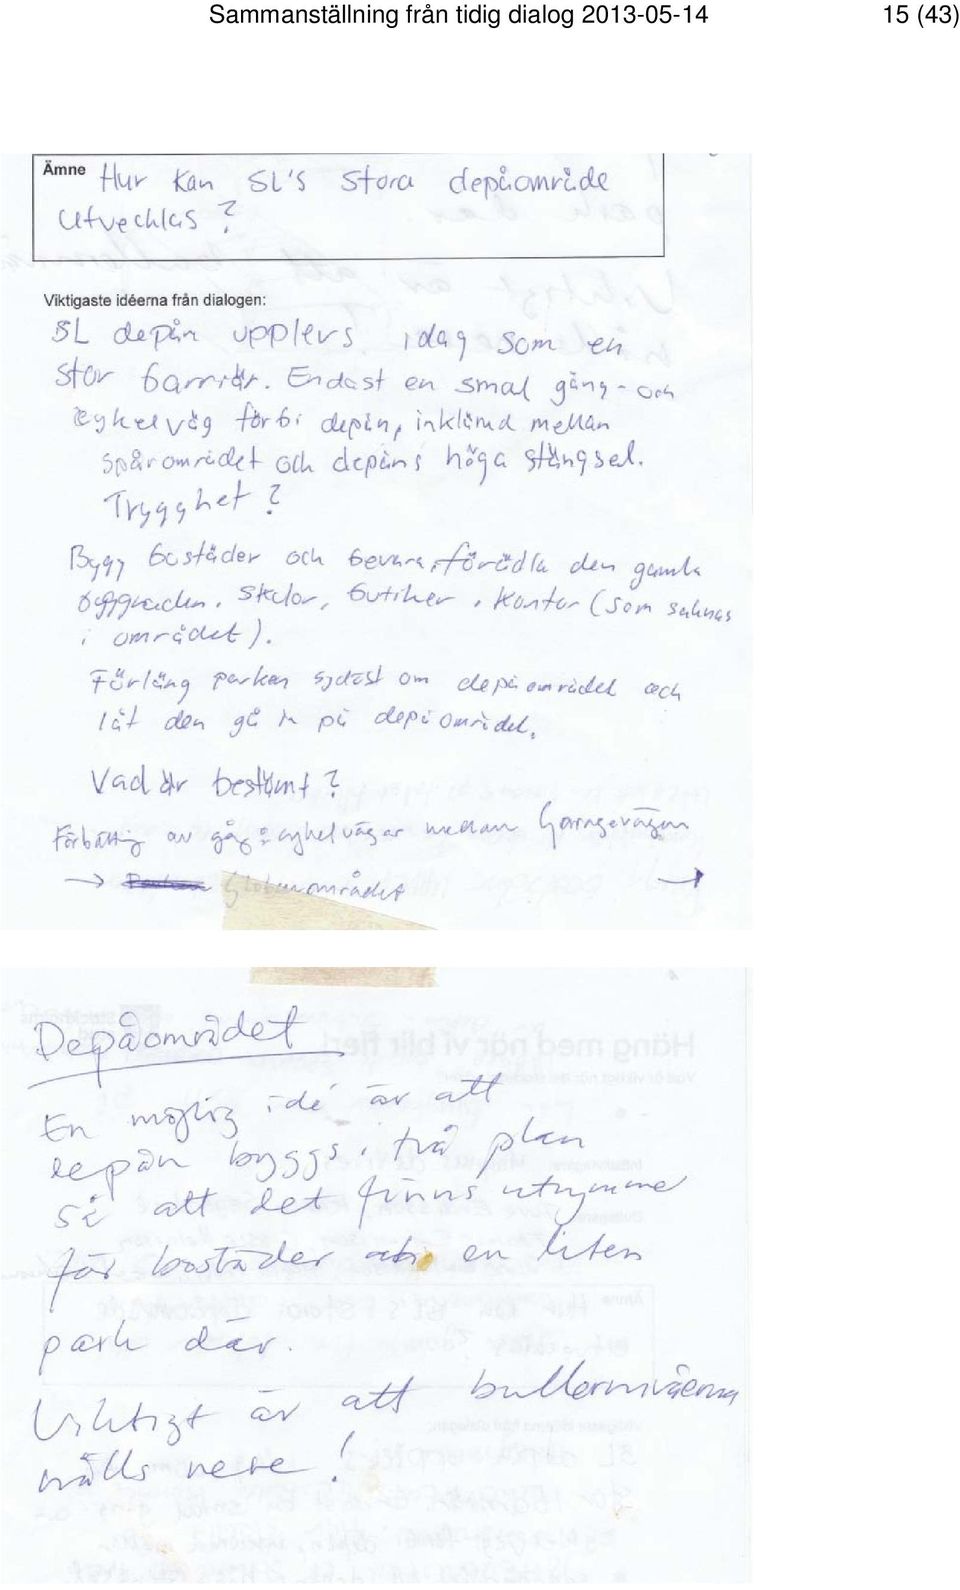 Sammanställning från tidig dialog 2013-05-14 15 (43)
Ämne Hur kan SL's stora depåområde
utvecklas?
Viktigaste idéerna från dialogen:
SL depån upplevs idag som en
stor barriär. Endast en smal gång- och
cykelväg förbi depån, inklämd mellan
spårområdet och depåns höga stängsel.
Trygghet?
Bygg bostäder och bevara, förädla den gamla
byggnaden. Skolor, butiker, kontor (som saknas
i området).
Förläng parken sydost om depåområdet och
låt den gå in på depåområdet.
Vad är bestämt?
Förbättring av gång o cykelvägar mellan
→ Globenområdet →
Depåområdet
En möjlig idé är att
depån byggs i två plan
så att det finns utrymme
för bostäder en liten
park där.
Viktigt är att bullernivåerna
hålls nere!